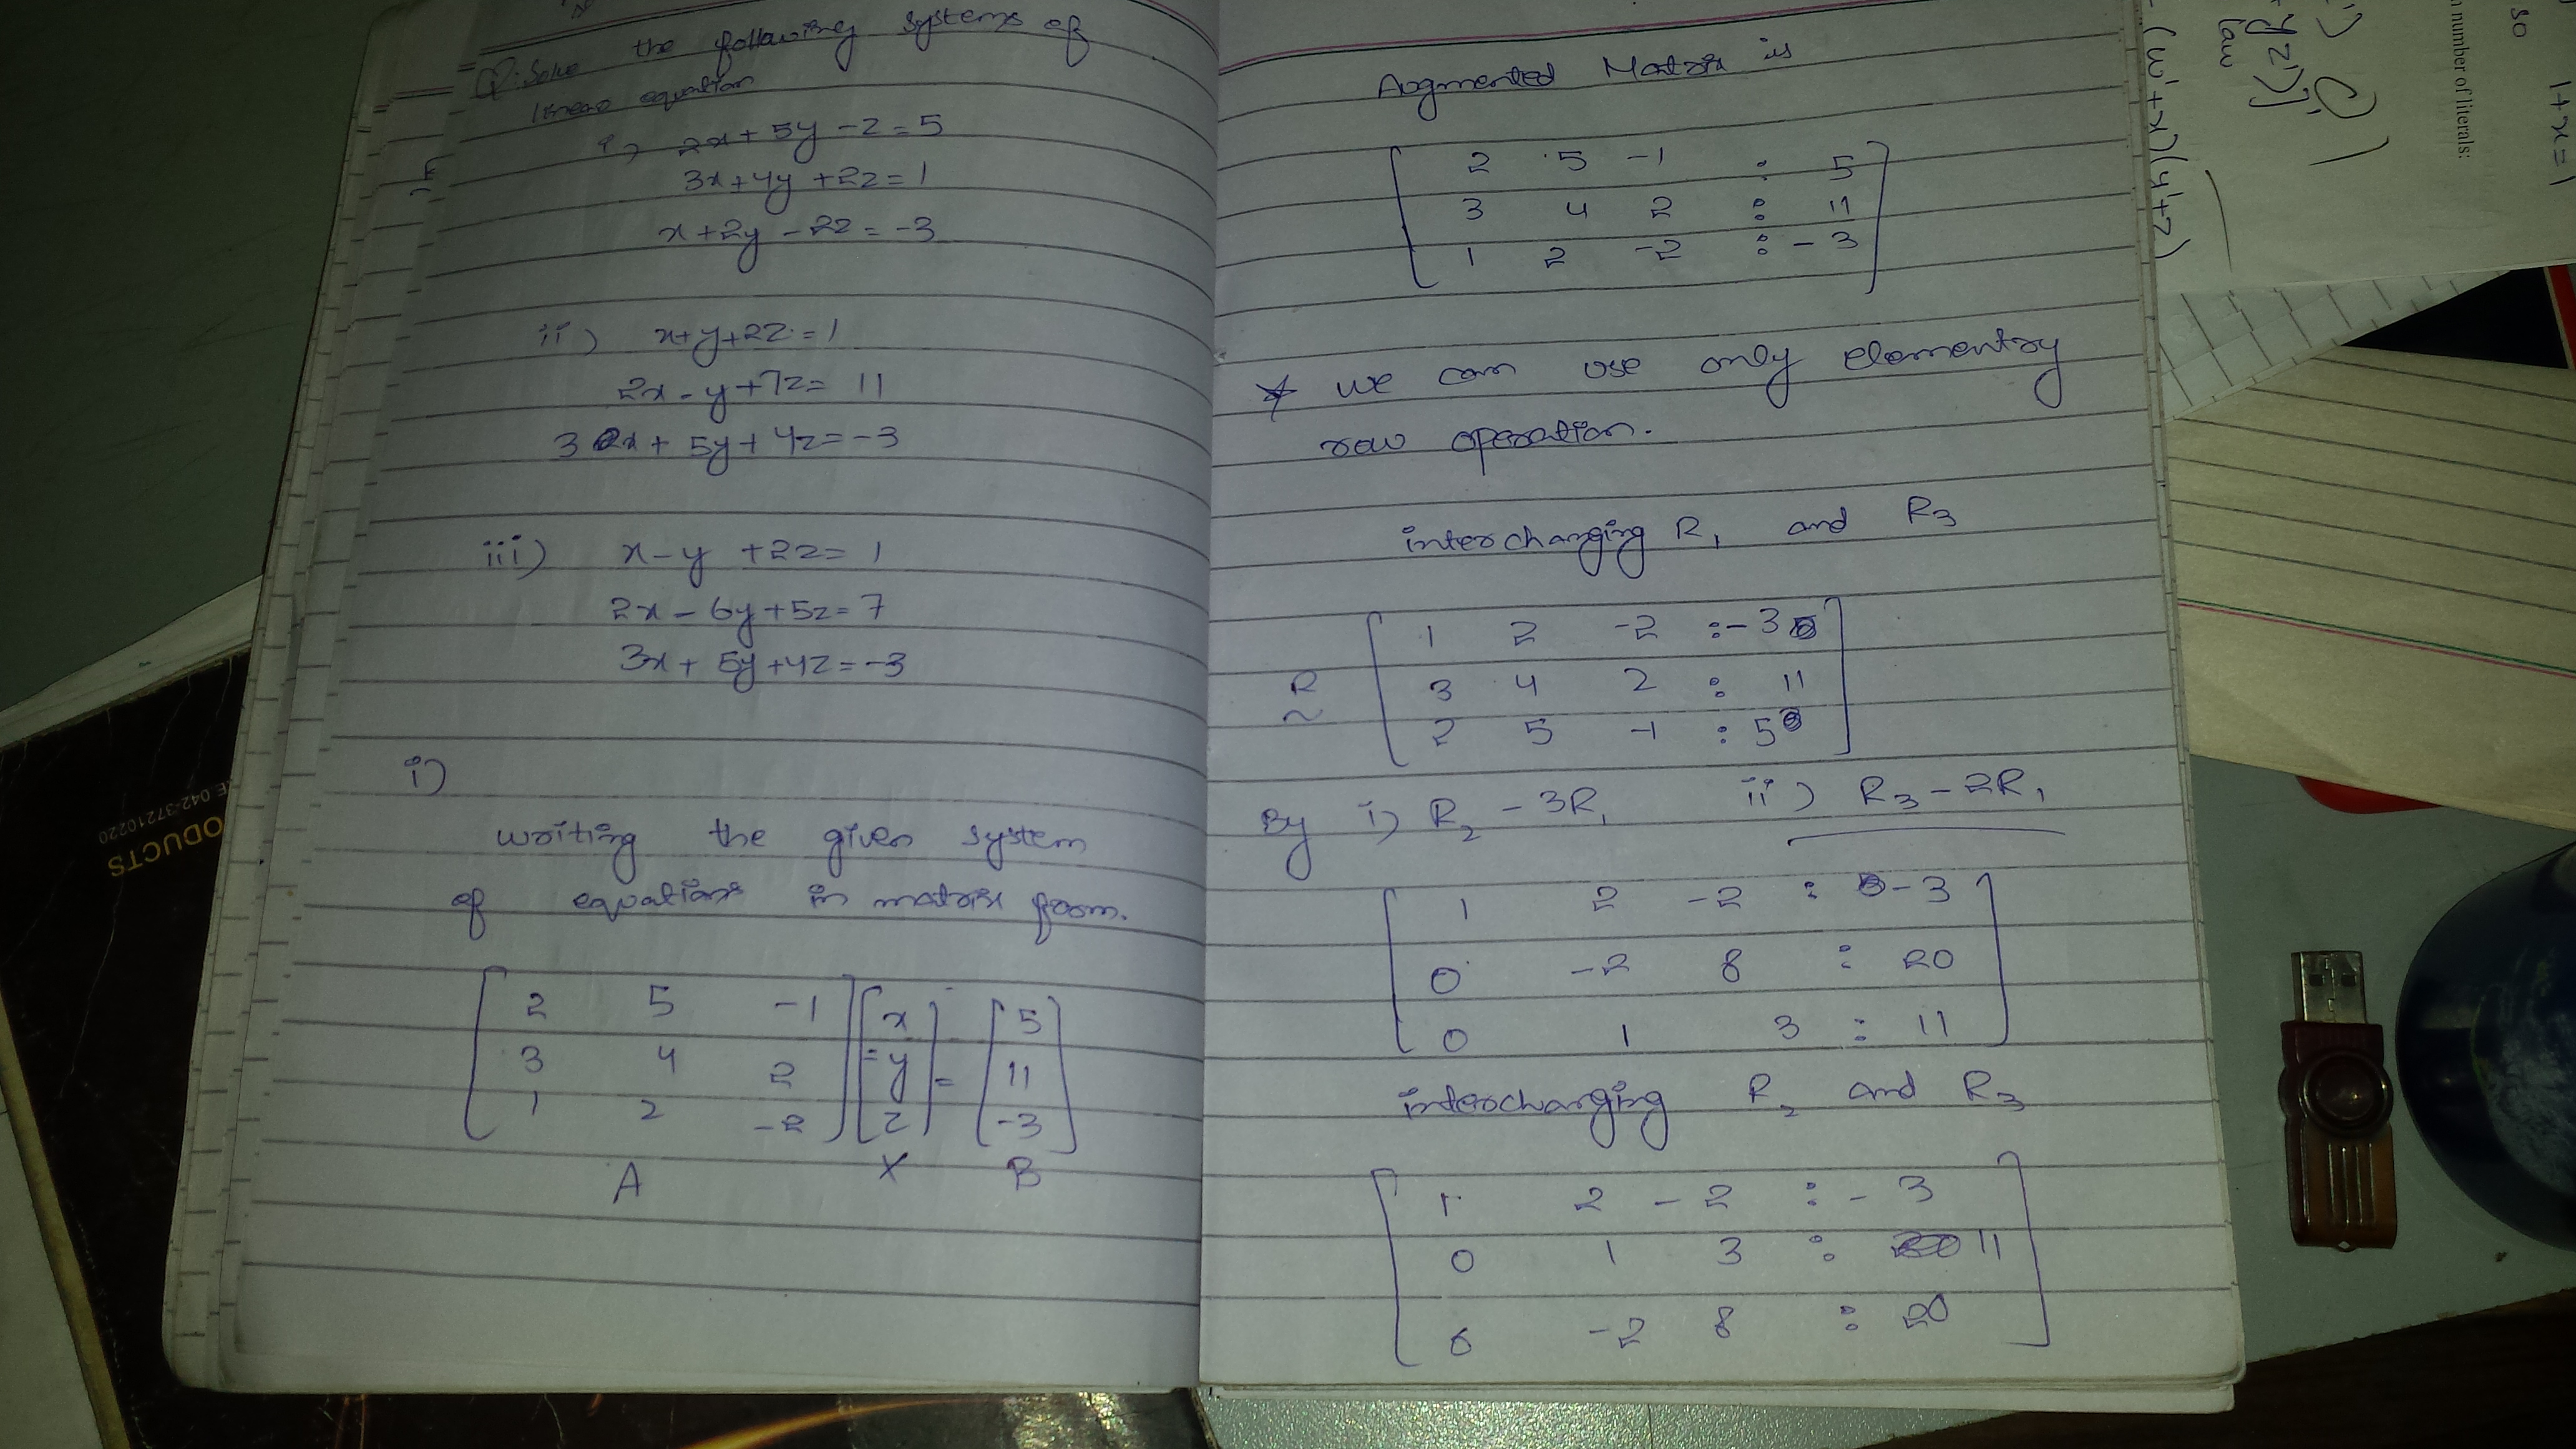 Q: Solve the following systems of
linear equation
i) 2x + 5y - z = 5
3x + 4y + 2z = 1
x + 2y - 2z = -3
ii) x + y + 2z = 1
2x - y + 7z = 11
3x + 5y + 4z = -3
iii) x - y + 2z = 1
2x - 6y + 5z = 7
3x + 5y + 4z = -3
i)
writing the given system
of equations in matrix form.
[ 2 5 -1 ] [ x ] = [ 5 ]
[ 3 4 2 ] [ y ] [ 11 ]
[ 1 2 -2 ] [ z ] [ -3 ]
A X B
Augmented Matrix is
[ 2 5 -1 : 5 ]
[ 3 4 2 : 11 ]
[ 1 2 -2 : -3 ]
* we can use only elementry
row operation.
interchanging R₁ and R₃
[ 1 2 -2 : -3 ]
R ~ [ 3 4 2 : 11 ]
[ 2 5 -1 : 5 ]
By i) R₂ - 3R₁ ii) R₃ - 2R₁
[ 1 2 -2 : -3 ]
[ 0 -2 8 : 20 ]
[ 0 1 3 : 11 ]
interchanging R₂ and R₃
[ 1 2 -2 : -3 ]
[ 0 1 3 : 11 ]
[ 0 -2 8 : 20 ]
so
1 + x = 1
n number of literals:
law
(w' + x')(y' + z)
E 042-37210220
ODUCTS